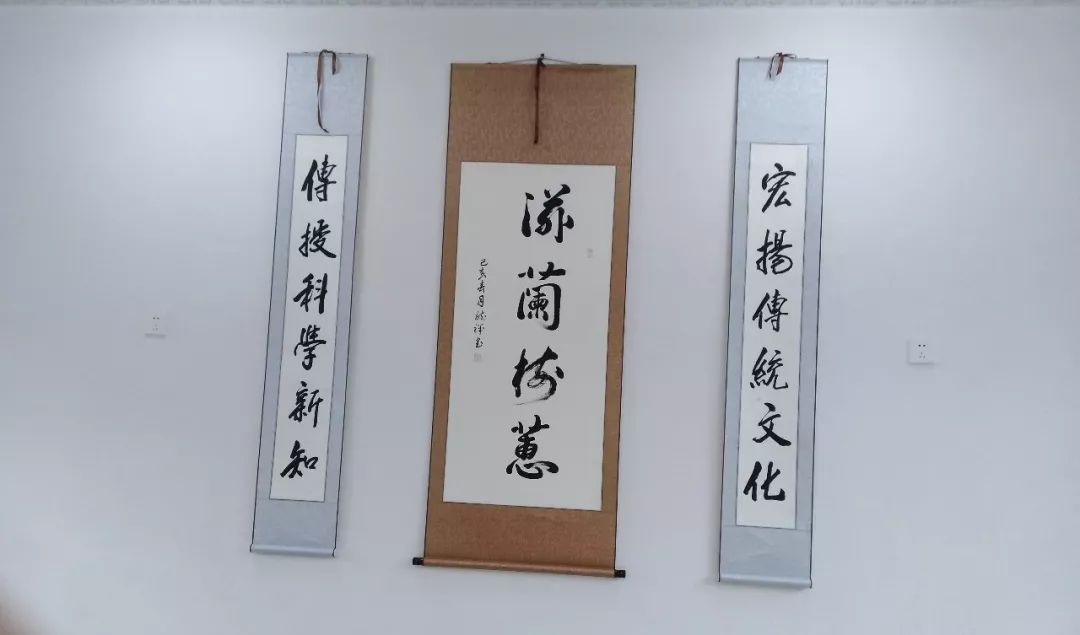 宏揚傳統文化
滋蘭樹蕙
己亥春月
傳授科學新知